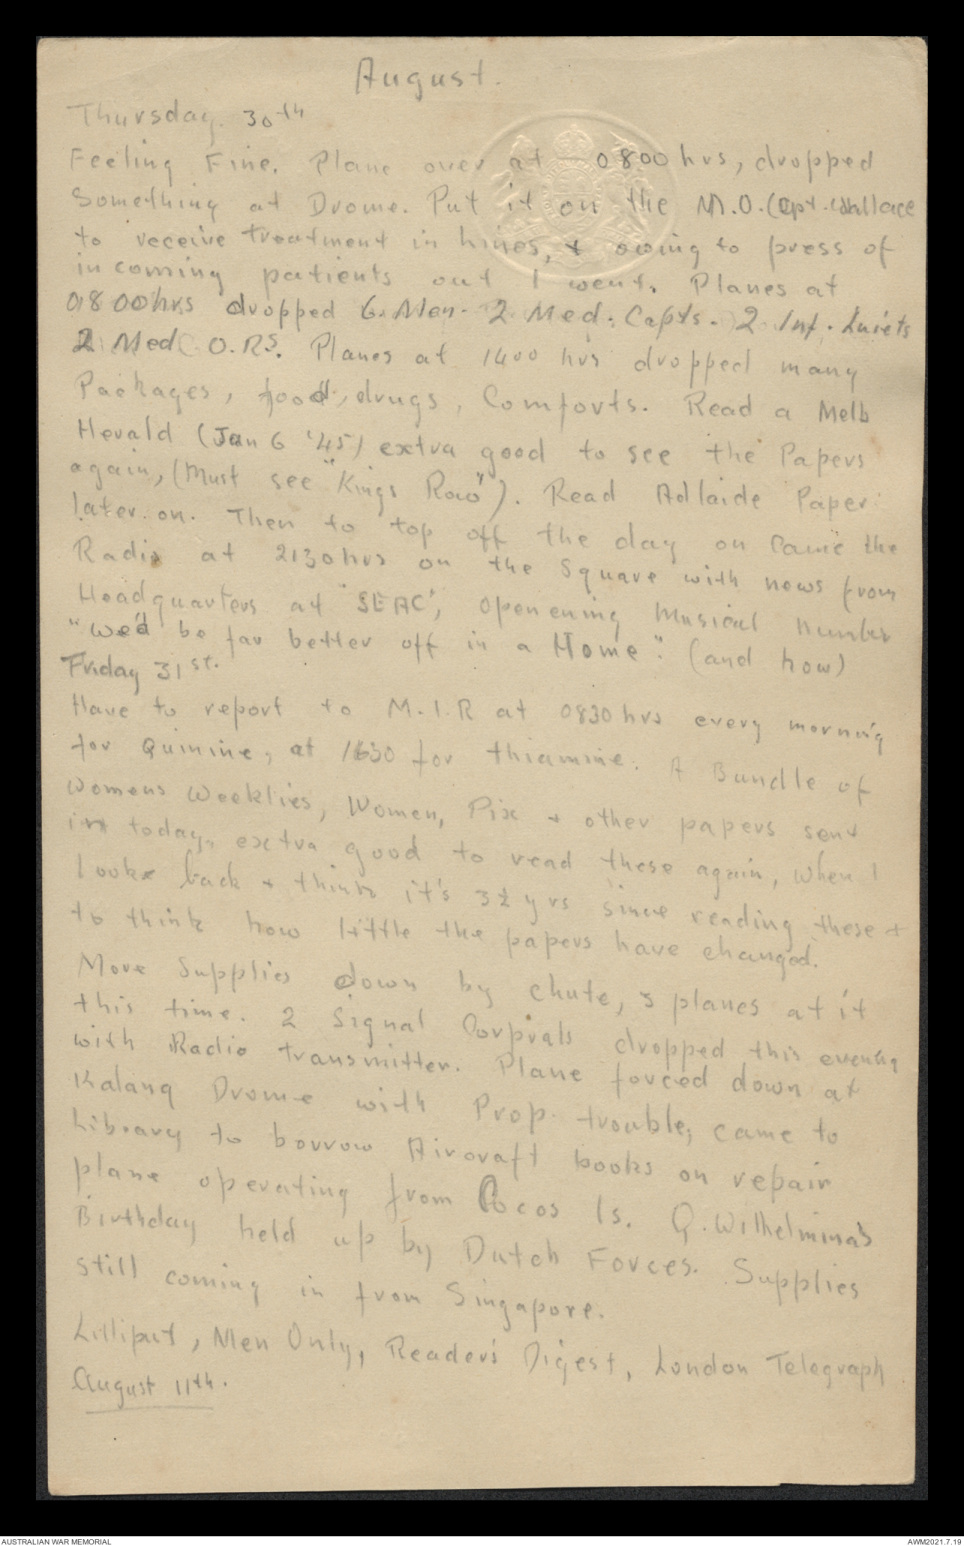 August.
Thursday. 30th
Feeling Fine. Plane over at 0800 hrs, dropped
Something at Drome. Put it on the M.O. (Cpt. Wallace
to receive treatment in hines, + owing to press of
in coming patients out I went. Planes at
0800hrs dropped 6. Men. 2 Med. Capts. 2 Inf. Luiets
2 Med O.RS. Planes at 1400 hrs dropped many
Packages, food, drugs, Comforts. Read a Melb
Herald (Jan 6 '45) extra good to see the Papers
again, (Must see "Kings Row"). Read Adlaide Paper
later on. Then to top off the day on came the
Radio at 2130hrs on the Square with news from
Headquarters at "SEAC", openening Musical number
"we'd be far better off in a Home". (and how)
Friday 31st.
Have to report to M.I.R at 0830 hrs every morning
for Quinine, at 1630 for thiamine. A Bundle of
Womens Weeklies, Women, Pix + other papers sent
in today, extra good to read these again, when I
look back + think it's 3½ yrs since reading these +
to think how little the papers have changed.
More Supplies down by chute, 3 planes at it
this time. 2 Signal Corprals dropped this evening
with Radio transmitter. Plane forced down at
Kalang Drome with Prop. trouble, came to
Library to borrow Aircraft books on repair
plane operating from Cocos Is. Q. Wilhelmina's
Birthday held up by Dutch Forces. Supplies
still coming in from Singapore.
Lilliput, Men Only, Readers Digest, London Telegraph
August 11th.
AUSTRALIAN WAR MEMORIAL
AWM2021.7.19